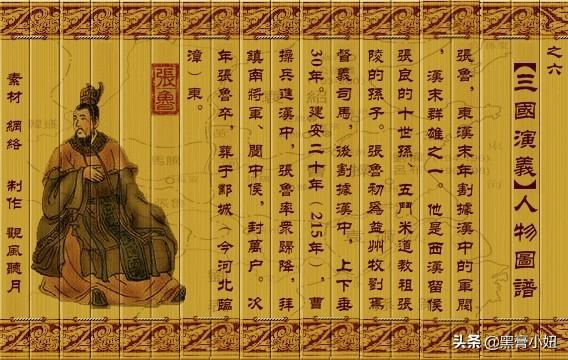 之六
【三國演義】人物圖譜
張魯，東漢末年割據漢中的軍閥
，漢末群雄之一。他是西漢留侯
張良的十世孫、五鬥米道教祖張
陵的孫子。張魯初爲益州牧劉焉
督義司馬，後割據漢中，上下垂
30年。建安二十年（215年），曹
操兵進漢中，張魯率衆歸降，拜
鎮南將軍、閬中侯，封萬户。次
年張魯卒，葬于鄴城（今河北臨
漳）東。
張魯
素材 網絡 制作 觀風聽月
头条 @黑骨小妞